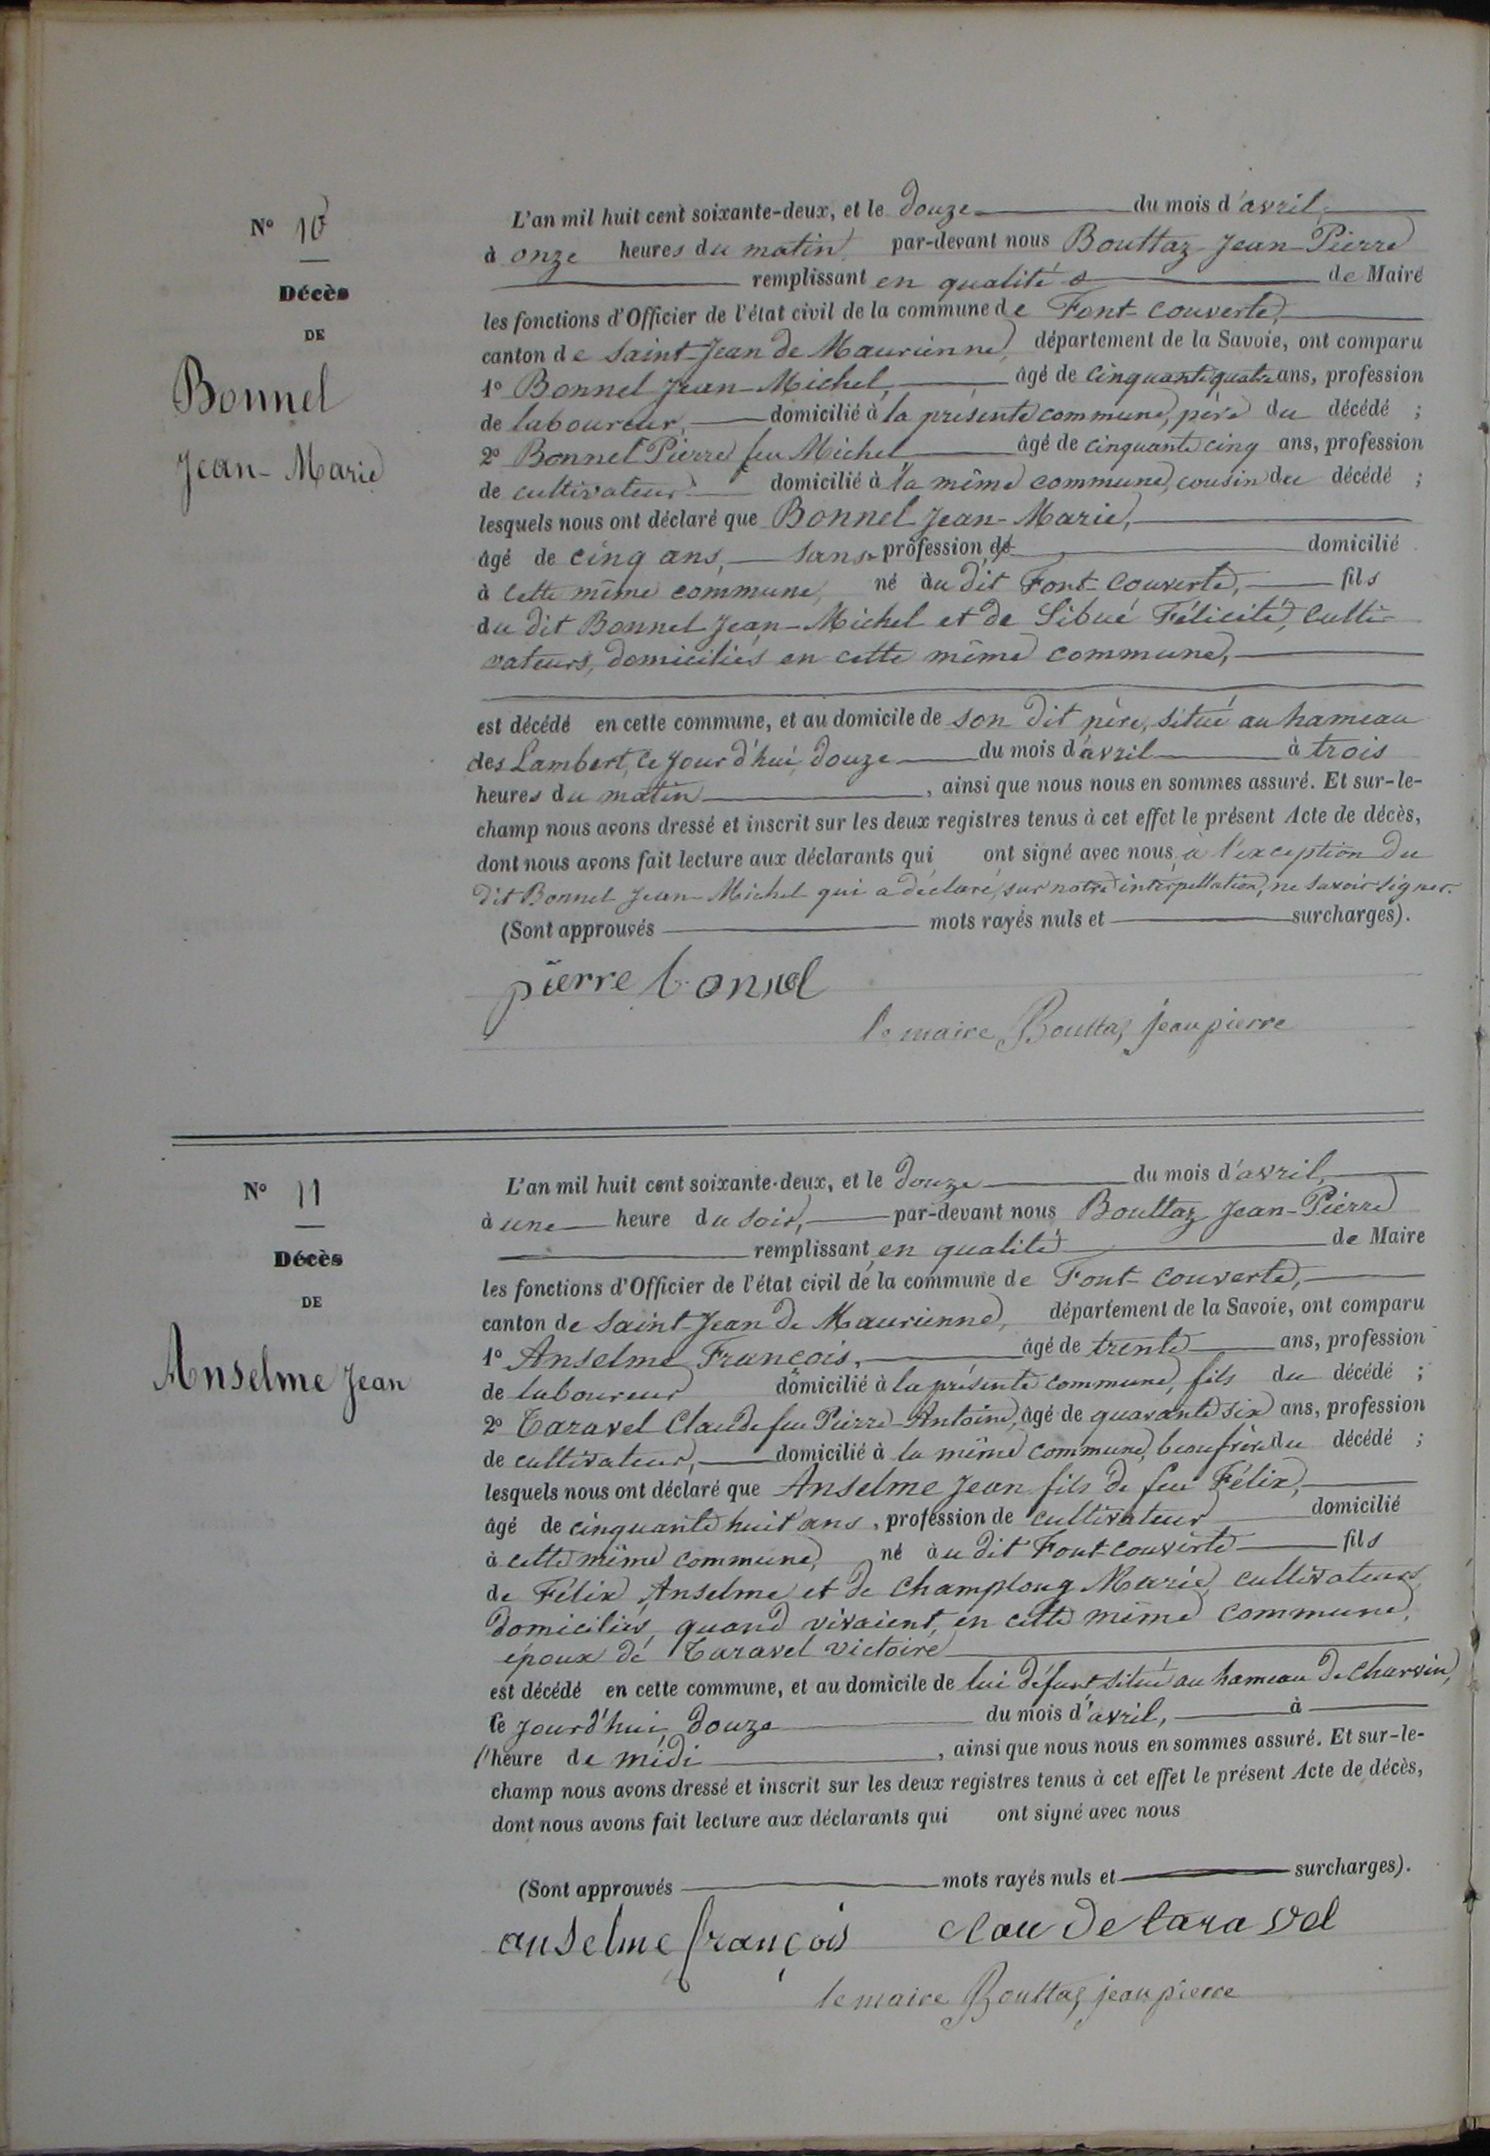 N° 10
Décès
DE
Bonnel
Jean-Marie
L'an mil huit cent soixante-deux, et le douze du mois d'avril,
à onze heures du matin, par-devant nous Bouttaz Jean-Pierre
remplissant en qualité de Maire
les fonctions d'Officier de l'état civil de la commune de Font-couverte,
canton de Saint-Jean de Maurienne, département de la Savoie, ont comparu
1° Bonnel Jean-Michel, âgé de cinquante quatre ans, profession
de laboureur, domicilié à la présente commune, père du décédé ;
2° Bonnel Pierre feu Michel âgé de cinquante cinq ans, profession
de cultivateur domicilié à la même commune, cousin du décédé ;
lesquels nous ont déclaré que Bonnel Jean-Marie,
âgé de cinq ans, sans profession, de domicilié
à cette même commune, né au dit Font-couverte, fils
du dit Bonnel Jean-Michel et de Sibué Félicité, culti-
vateurs, domiciliés en cette même commune,
est décédé en cette commune, et au domicile de son dit père, situé au hameau
des Lambert, ce jourd'hui douze du mois d'avril à trois
heures du matin , ainsi que nous nous en sommes assuré. Et sur-le-
champ nous avons dressé et inscrit sur les deux registres tenus à cet effet le présent Acte de décès,
dont nous avons fait lecture aux déclarants qui ont signé avec nous à l'exception du
dit Bonnel Jean-Michel qui a déclaré, sur notre interpellation, ne savoir signer.
(Sont approuvés mots rayés nuls et surcharges).
pierre bonnel
le maire Bouttaz jean pierre
N° 11
Décès
DE
Anselme Jean
L'an mil huit cent soixante-deux, et le douze du mois d'avril,
à une heure du soir, par-devant nous Bouttaz Jean-Pierre
remplissant en qualité de Maire
les fonctions d'Officier de l'état civil de la commune de Font-couverte,
canton de Saint-Jean de Maurienne, département de la Savoie, ont comparu
1° Anselme François, âgé de trente ans, profession
de laboureur domicilié à la présente commune, fils du décédé ;
2° Taravel Claude feu Pierre-Antoine, âgé de quarante six ans, profession
de cultivateur, domicilié à la même commune, beaufrère du décédé ;
lesquels nous ont déclaré que Anselme Jean fils de feu Félix,
âgé de cinquante huit ans, profession de cultivateur domicilié
à cette même commune, né au dit Font-couverte fils
de Félix Anselme et de Champlong Marie, cultivateurs
domiciliés, quand vivaient, en cette même commune,
époux de Taravel Victoire
est décédé en cette commune, et au domicile de lui défunt situé au hameau de Charvin,
ce jourd'hui douze du mois d'avril, à
l'heure de midi , ainsi que nous nous en sommes assuré. Et sur-le-
champ nous avons dressé et inscrit sur les deux registres tenus à cet effet le présent Acte de décès,
dont nous avons fait lecture aux déclarants qui ont signé avec nous
(Sont approuvés mots rayés nuls et surcharges).
anselme françois claude taravel
le maire Bouttaz jean pierre